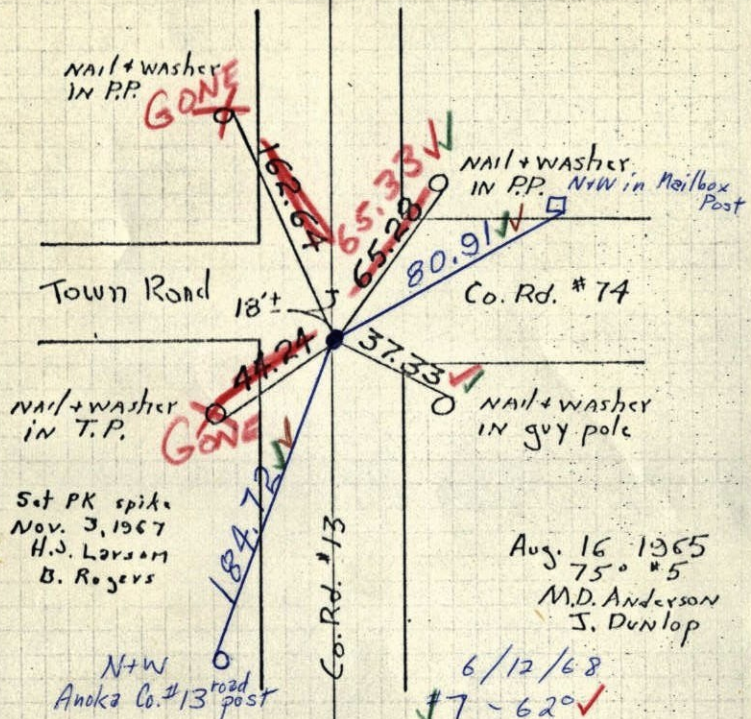 NAil + WASHER
IN P.P.
GONE
162.64
65.33
65.28
NAil + WASHER
IN P.P.
N+W in Mailbox
Post
80.91
Town Road
18'±
Co. Rd. #74
44.24
37.33
NAil + WASHER
IN T.P.
GONE
NAil + WASHER
IN guy pole
184.72
Set PK spike
Nov. 3, 1967
H.J. Larson
B. Rogers
Co. Rd. #13
Aug. 16 1965
75° #5
M.D. Anderson
J. Dunlop
N+W
Anoka Co. #13 road post
6/12/68
#7 - 62°